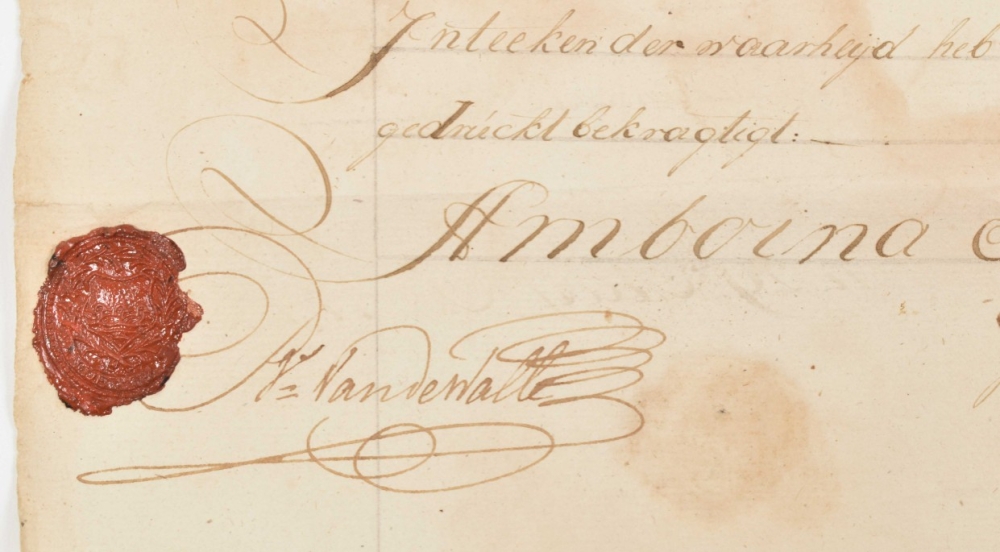 In teeken der waarheijd heb
gedrúckt bekragtigt:—
Amboina
Vandewalle